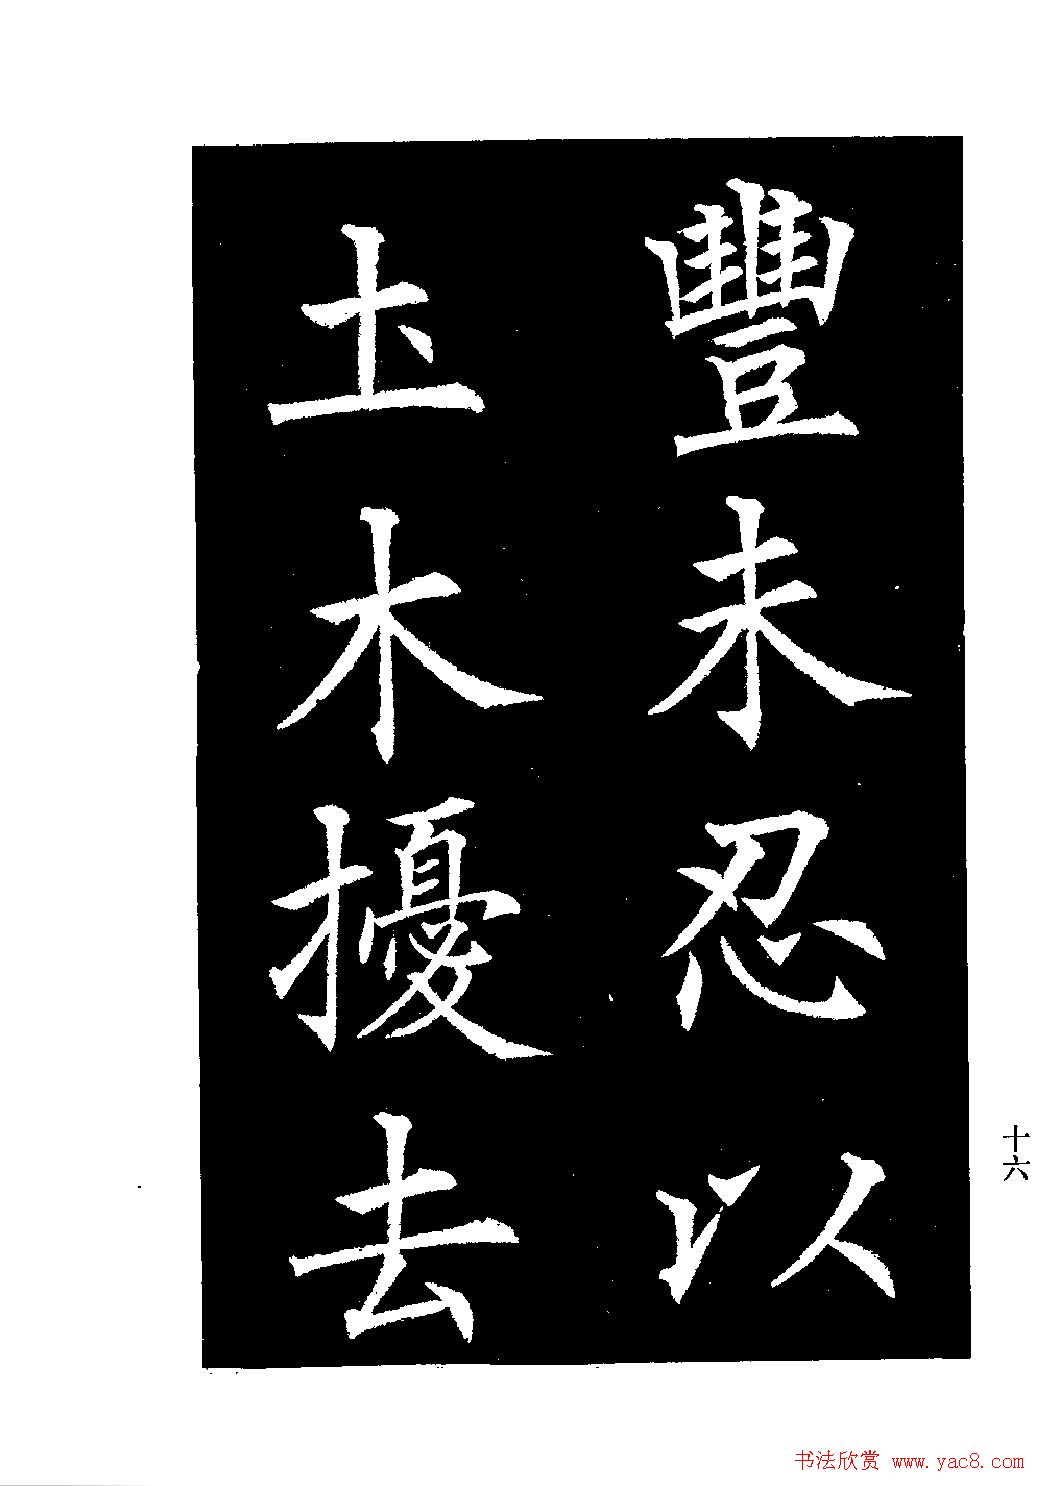 豐未忍以
土木擾去
十六
书法欣赏 www.yac8.com